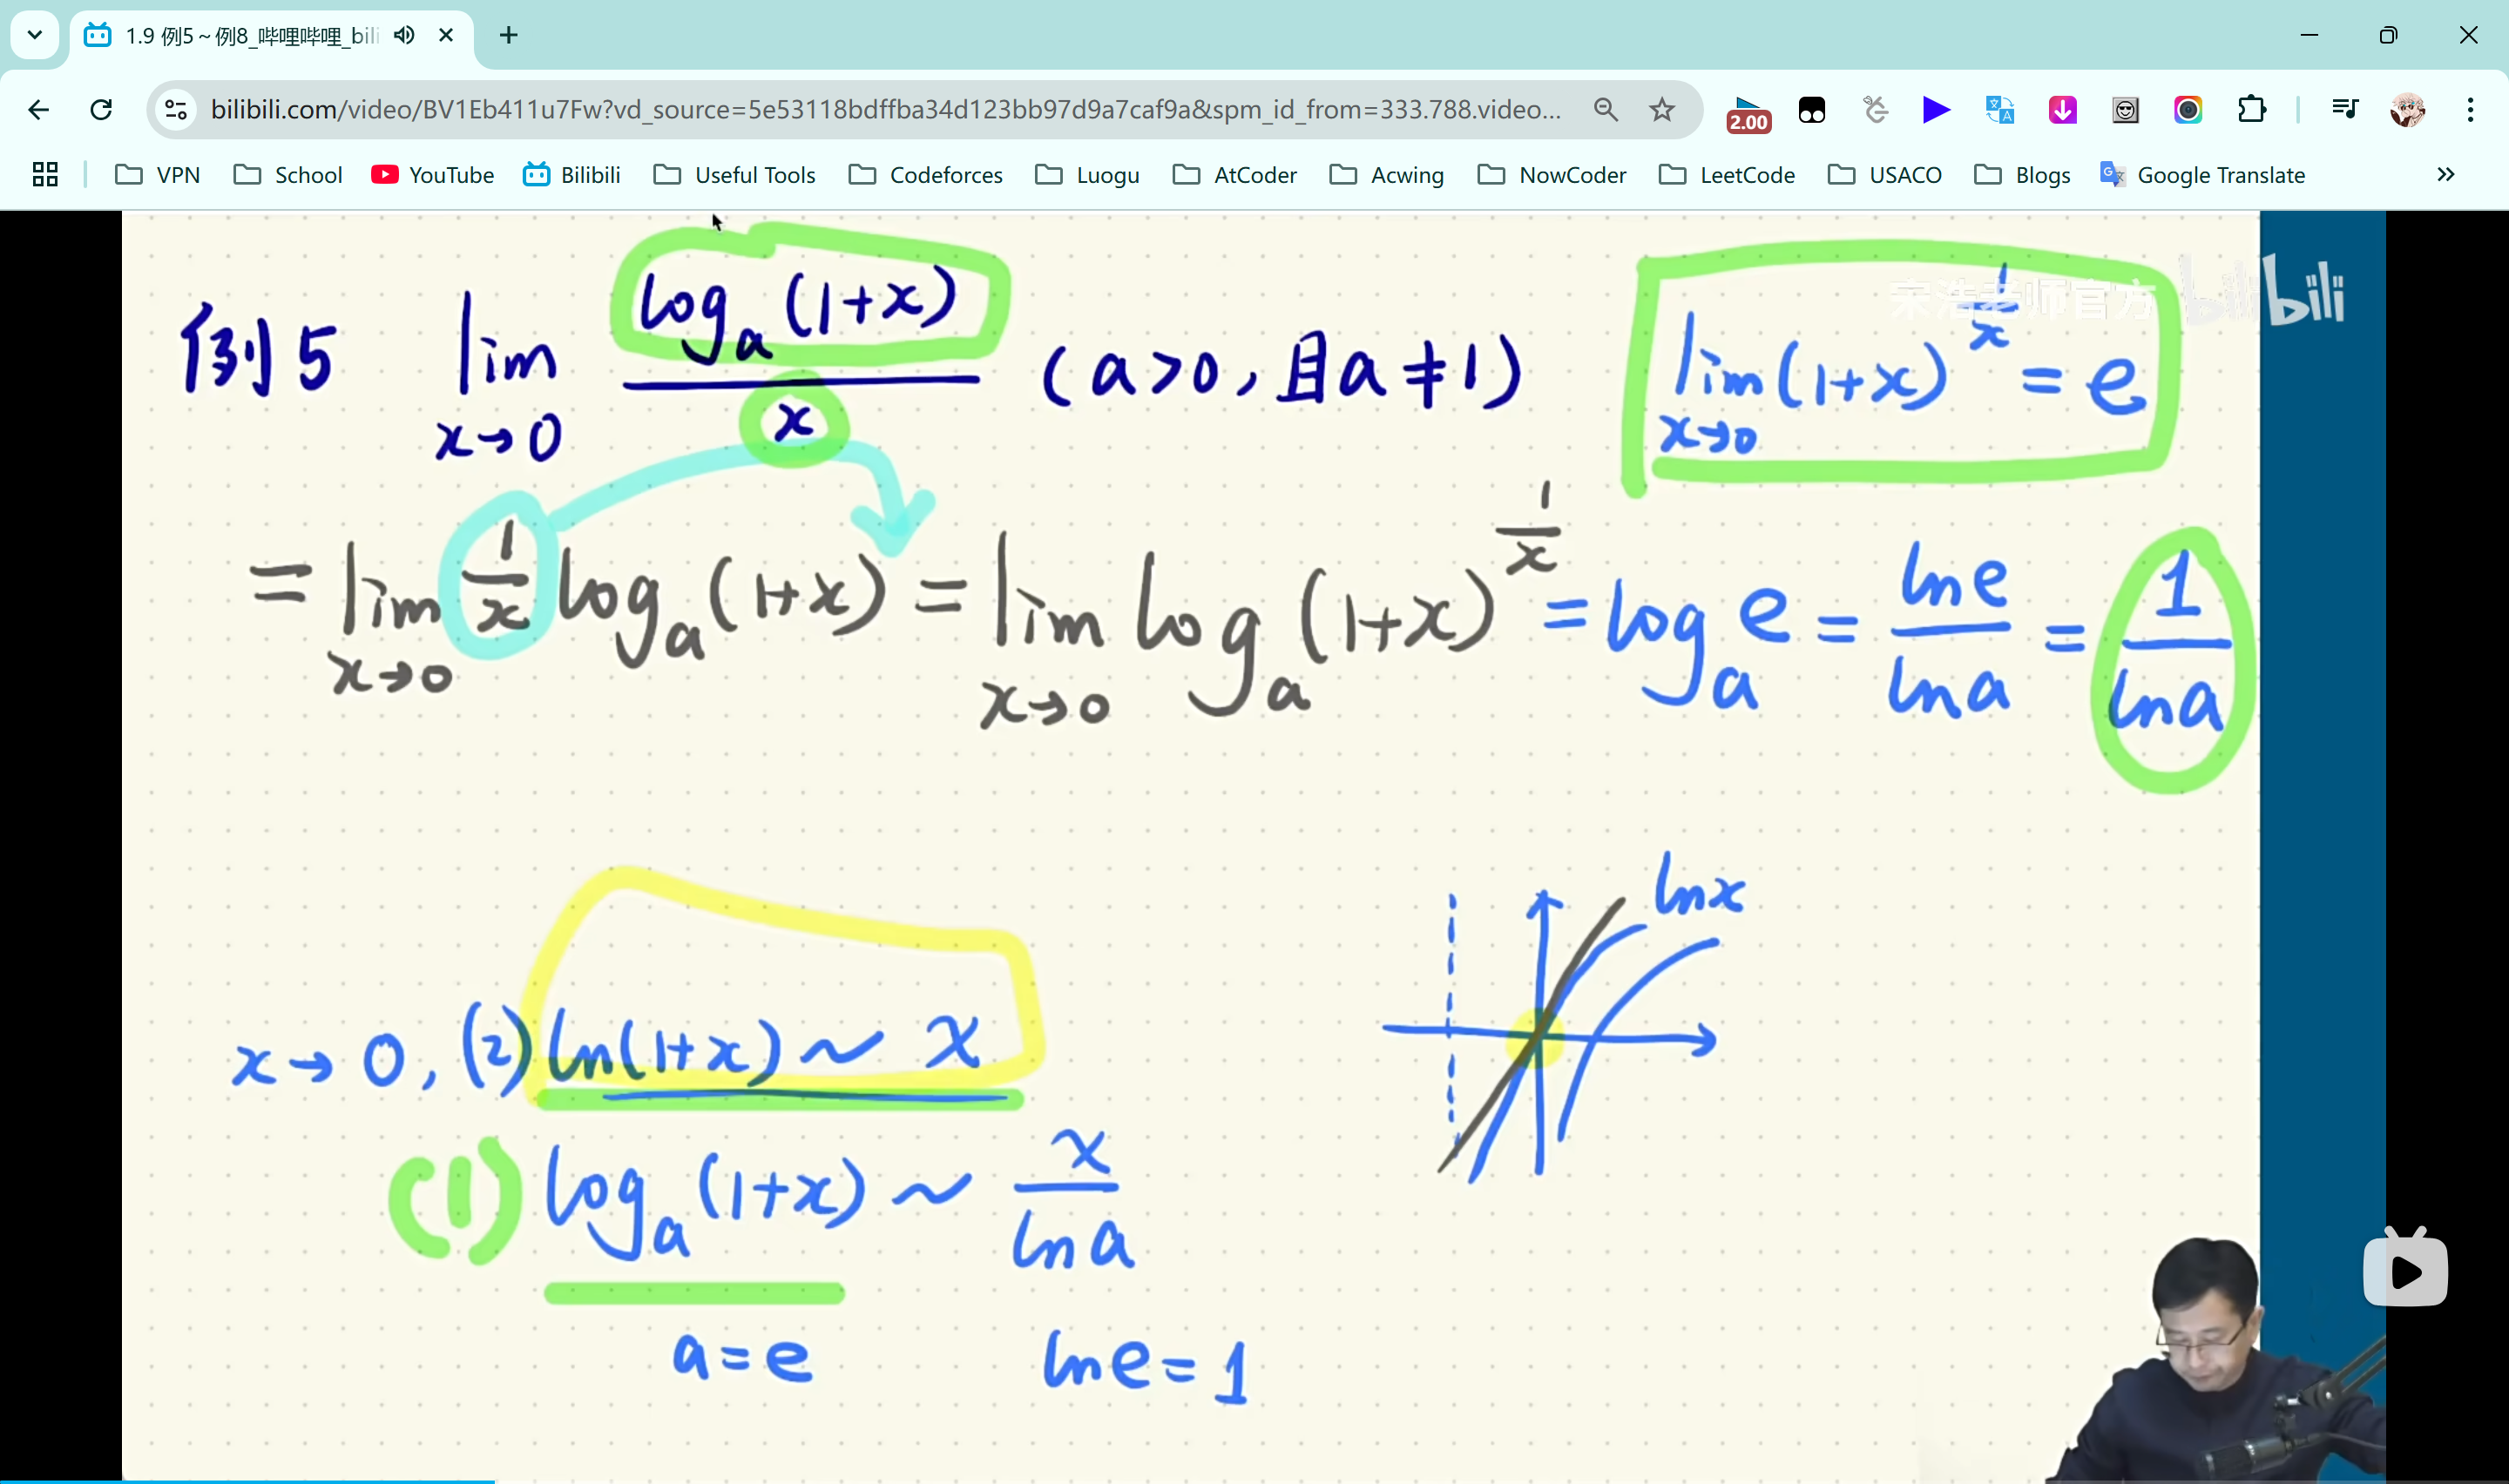 1.9 例5～例8_哔哩哔哩_bili
bilibili.com/video/BV1Eb411u7Fw?vd_source=5e53118bdffba34d123bb97d9a7caf9a&spm_id_from=333.788.video...
2.00
VPN School YouTube Bilibili Useful Tools Codeforces Luogu AtCoder Acwing NowCoder LeetCode USACO Blogs Google Translate
宋浩老师官方 bilibili
例5 lim_{x→0} log_a(1+x)/x (a>0,且a≠1) lim_{x→0}(1+x)^{1/x} = e
= lim_{x→0} 1/x log_a(1+x) = lim_{x→0} log_a(1+x)^{1/x} = log_a e = ln e/ln a = 1/ln a
ln x
x→0, (2) ln(1+x) ~ x
(1) log_a(1+x) ~ x/ln a
a=e ln e=1